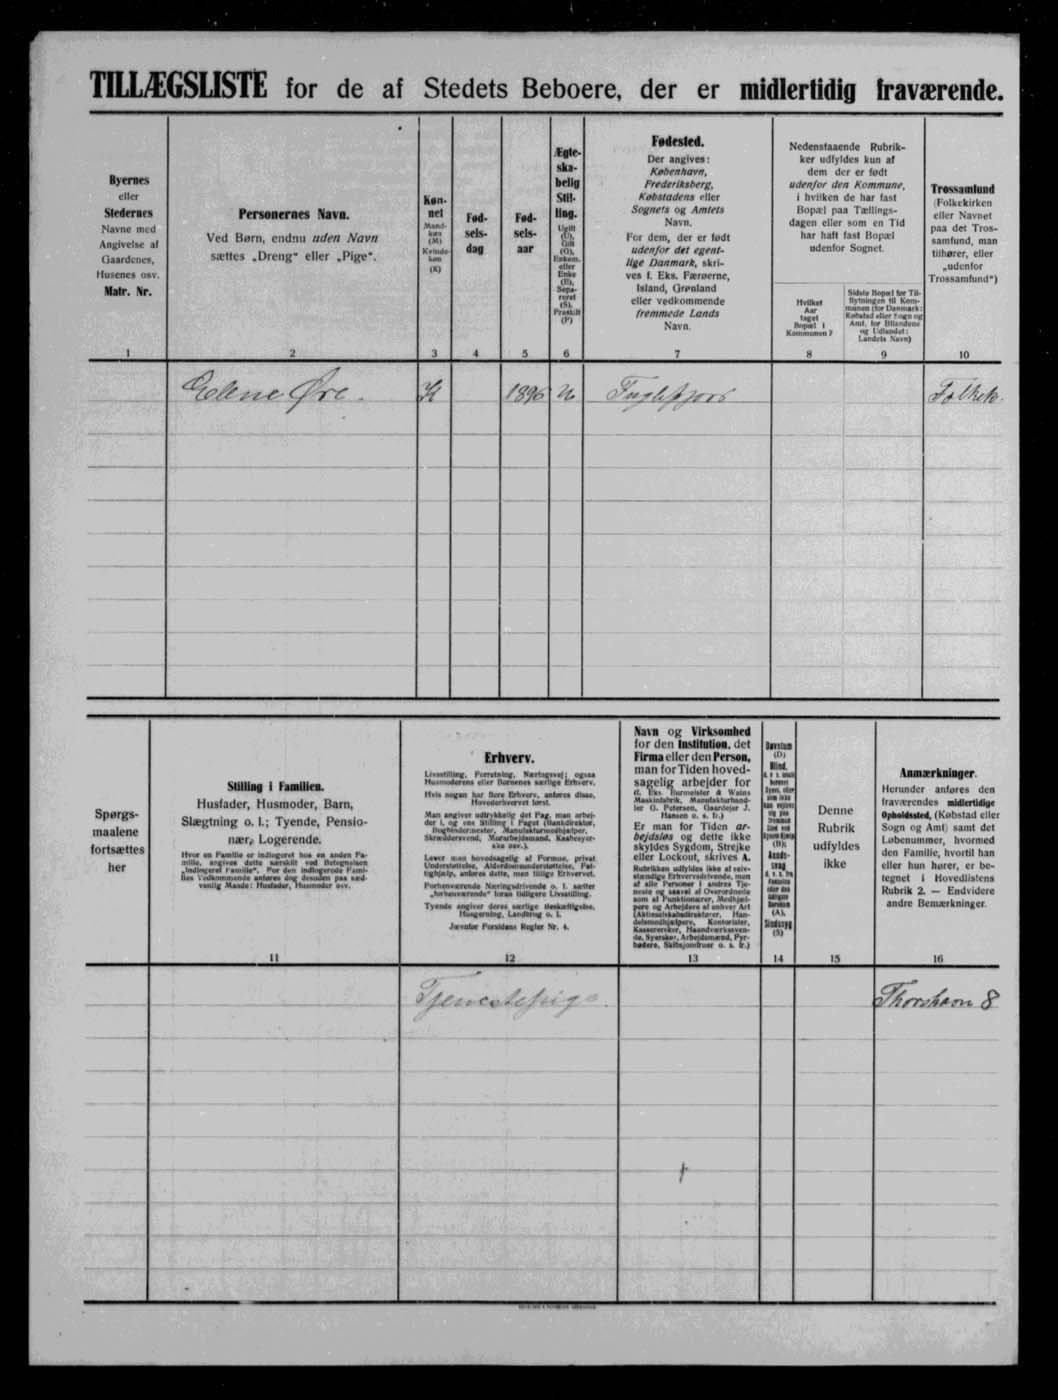 TILLÆGSLISTE for de af Stedets Beboere, der er midlertidig fraværende.
Byernes
eller
Stedernes
Navne med
Angivelse af
Gaardenes,
Husenes osv.
Matr. Nr.
1
Personernes Navn.
Ved Børn, endnu uden Navn
sættes „Dreng“ eller „Pige“.
2
Køn-
net
Mand-
køn
(M)
Kvinde-
køn
(K)
3
Fød-
sels-
dag
4
Fød-
sels-
aar
5
Ægte-
ska-
belig
Stil-
ling.
Ugift
(U),
Gift
(G),
Enkem.
eller
Enke
(E),
Sepa-
reret
(S),
Fraskilt
(F)
6
Fødested.
Der angives:
København,
Frederiksberg,
Købstadens eller
Sognets og Amtets
Navn.
For dem, der er født
udenfor det egent-
lige Danmark, skri-
ves f. Eks. Færøerne,
Island, Grønland
eller vedkommende
fremmede Lands
Navn.
7
Nedenstaaende Rubrik-
ker udfyldes kun af
dem der er født
udenfor den Kommune,
i hvilken de har fast
Bopæl paa Tællings-
dagen eller som en Tid
har haft fast Bopæl
udenfor Sognet.
Hvilket
Aar
taget
Bopæl i
Kommunen?
8
Sidste Bopæl før Til-
flytningen til Kom-
munen (for Danmark:
Købstad eller Sogn og
Amt, for Bilandene
og Udlandet:
Landets Navn)
9
Trossamfund
(Folkekirken
eller Navnet
paa det Tros-
samfund, man
tilhører, eller
„udenfor
Trossamfund“)
10
Elene Øre. K U Fuglefjord Folkek.
Spørgs-
maalene
fortsættes
her
Stilling i Familien.
Husfader, Husmoder, Barn,
Slægtning o. l.; Tyende, Pensio-
nær, Logerende.
Hvor en Familie er indlogeret hos en anden Fa-
milie, angives dette særskilt ved Betegnelsen
„Indlogeret Familie“. For den indlogerede Fami-
lies Vedkommende anføres dog desuden paa sæd-
vanlig Maade: Husfader, Husmoder osv.
11
Erhverv.
Livsstilling, Forretning, Næringsvej; ogsaa
Husmoderens eller Børnenes særlige Erhverv.
Hvis nogen har flere Erhverv, anføres disse,
Hovederhvervet først.
Man angiver udtrykkelig det Fag, man arbej-
der i, og ens Stilling i Faget (Bankdirektør,
Bogbindermester, Manufakturmedhjælper,
Skræddersvend, Murarbejdsmand, Kaabesyer-
ske osv.).
Lever man hovedsagelig af Formue, privat
Understøttelse, Alderdomsunderstøttelse, Fat-
tighjælp, anføres dette, men tillige Erhvervet.
Forhenværende Næringsdrivende o. l. sætter
„forhenværende“ foran tidligere Livsstilling.
Tyende angiver deres særlige Beskæftigelse,
Husgerning, Landbrug o. l.
Jævnfør Forsidens Regler Nr. 4.
12
Navn og Virksomhed
for den Institution, det
Firma eller den Person,
man for Tiden hoved-
sagelig arbejder for
(f. Eks. Burmeister & Wains
Maskinfabrik, Manufakturhand-
ler G. Petersen, Gaardejer J.
Hansen o. s. fr.)
Er man for Tiden ar-
bejdsløs og dette ikke
skyldes Sygdom, Strejke
eller Lockout, skrives A.
Rubrikken udfyldes ikke af selv-
stændige Erhvervsdrivende, men
af alle Personer i andres Tje-
neste og saavel af Overordnede
som af Funktionærer, Medhjæl-
pere og Arbejdere af enhver Art
(Aktieselskabsdirektører, Han-
delsmedhjælpere, Kontorister,
Kasserersker, Haandværkssven-
de, Syersker, Arbejdsmænd, Fyr-
bødere, Skibsjomfruer o. s. fr.)
13
Døvstum
(D)
Blind,
(B);
Aands-
svag
(A),
Sindssyg
(S)
14
Denne
Rubrik
udfyldes
ikke
15
Anmærkninger.
Herunder anføres den
fraværendes midlertidige
Opholdssted, (Købstad eller
Sogn og Amt) samt det
Løbenummer, hvormed
den Familie, hvortil han
eller hun hører, er be-
tegnet i Hovedlistens
Rubrik 2. — Endvidere
andre Bemærkninger.
16
Tjenestepige. Thorshavn 8